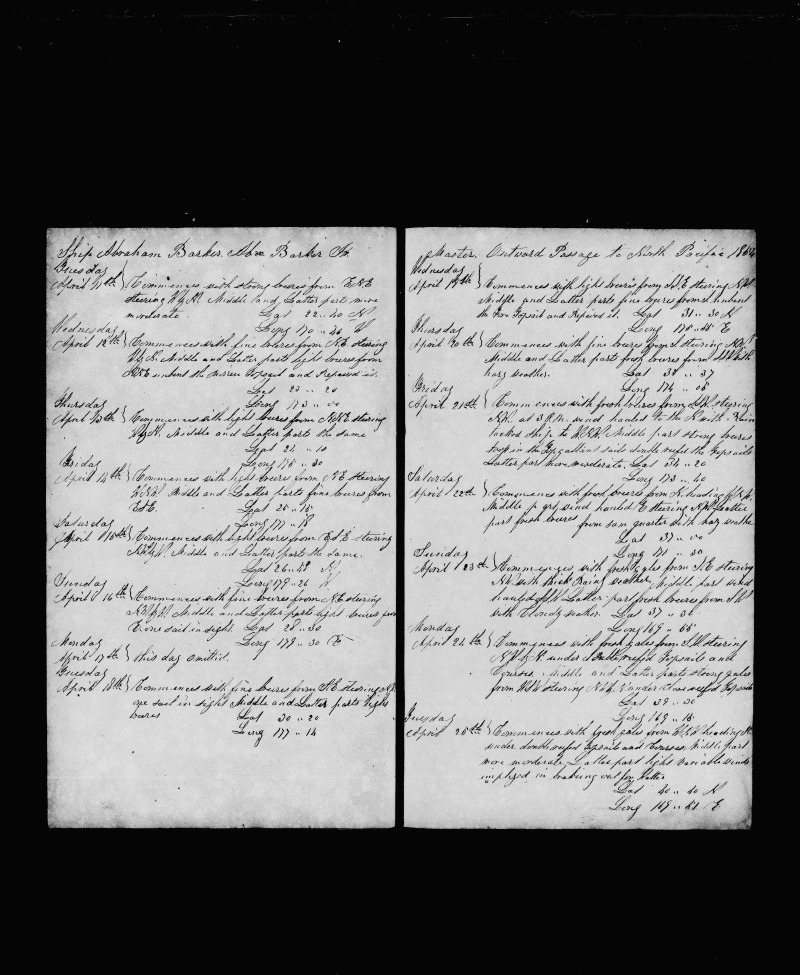 Ship Abraham Barker. Abm Barker Jr.
Tuesday
April 11th } Commences with strong breeses from ENE
steering W by N. Middle and Latter parts more
moderate. Lat 22 .. 40 N
Long 170 .. 46 W
Wednesday
April 12th } Commences with fine breeses from NE steering
W by N. Middle and Latter parts light breeses from
unbent the Topsail and Repaired it.
Lat 23 .. 20
Long 173 .. 00
Thursday
April 13th } Commences with light breeses from NNE steering
W by N. Middle and Latter parts the same
Lat 24 .. 10
Long 175 .. 30
Friday
April 14th } Commences with light breeses from NE steering
Middle and Latter parts fine breeses from
Lat 25 .. 15
Long 177 .. 18
Saturday
April 15th } Commences with light breeses from steering
Middle and Latter parts the same.
Lat 26 .. 48 N
Long 179 .. 26 W
Sunday
April 16th } Commences with fine breeses from NE steering
Middle and Latter parts light breeses from
E. one sail in sight. Lat 28 .. 30
Long 179 .. 30 E
Monday
April 17th } this day omitted.
Tuesday
April 18th } Commences with fine breeses from SE steering
one sail in sight Middle and Latter parts light
breses Lat 30 .. 20
Long 177 .. 14
Master. Outward Passage to North Pacific 1864
Wednesday
April 19th } Commences with light breeses from SE steering NW
Middle and Latter parts fine breeses from unbent
the Fore Topsail and Repaired it. Lat 31 .. 30 N
Long 175 .. 55 E
Thursday
April 20th } Commences with fine breeses from S steering
Middle and Latter parts fresh breeses from with
hazy weather. Lat 32 .. 37
Long 174 .. 05
Friday
April 21st } Commences with fresh breeses from steering
NW. at 3 P.M. wind hauled to the N with Rain
tacked ship to Middle part strong breeses
took in the Topgallant sails double reefed the Topsails
Latter part more moderate. Lat 34 .. 20
Long 173 .. 40
Saturday
April 22nd } Commences with fresh breeses from N. heading
Middle part wind hauled E steering NW Latter
part fresh breeses from same quarter with hazy weather
Lat 37 .. 00
Long 171 .. 30
Sunday
April 23rd } Commences with fresh gales from SE steering
NW with thick Rainy weather, Middle part wind
hauled Latter part fresh breeses from
with Cloudy weather. Lat 37 .. 30
Long 169 .. 55
Monday
April 24th } Commences with fresh gales from steering
under double reefed Topsails and
Courses. Middle and Latter parts strong gales
from steering under Close reefed Topsails
Lat 39 .. 30
Long 169 .. 15
Tuesday
April 25th } Commences with fresh gales from heading
under double reefed Topsails and Courses Middle part
more moderate, Latter part light variable winds
employed in breaking out for Water
Lat 40 .. 40 N
Long 169 .. 51 E